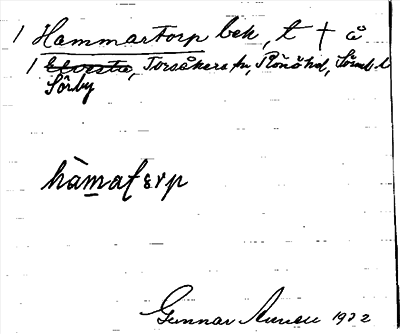 1 Hammartorp bek, t † å
1 Elvesta, Torsåkers sn, Rönö hd, Sörml. l
Sörby
hàmatɛrp
Gunnar 1922